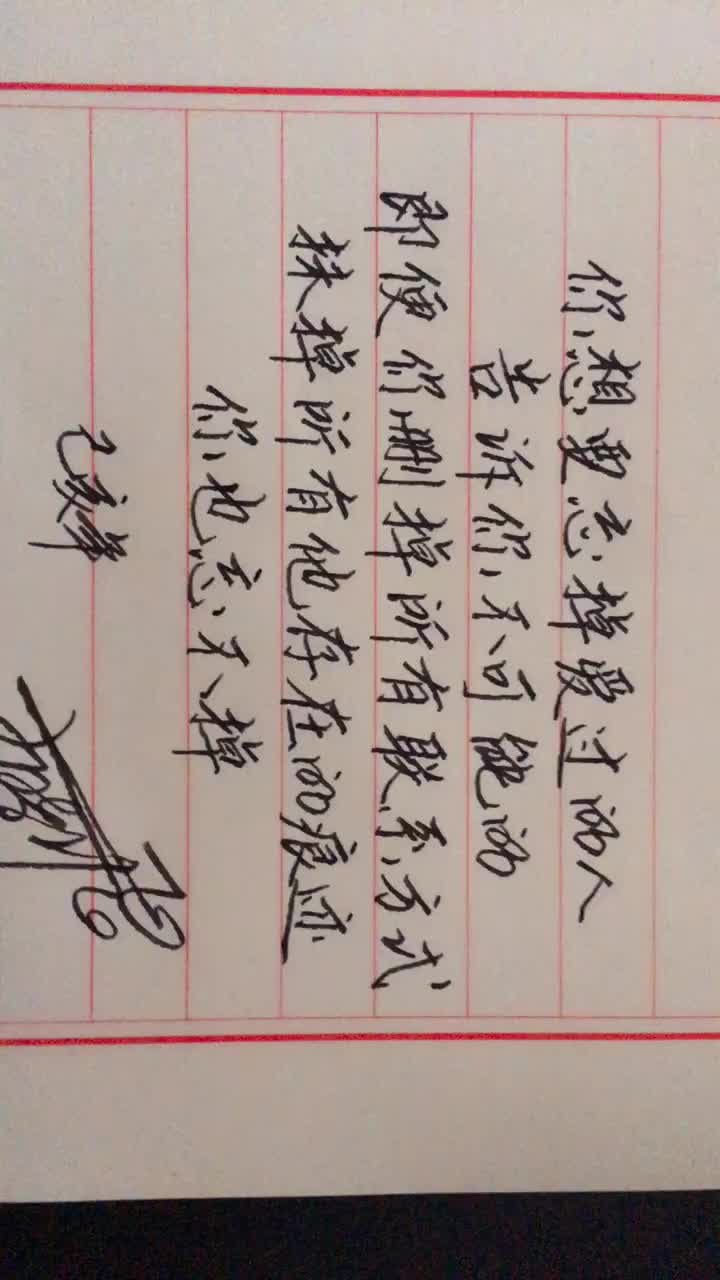 你想要忘掉爱过的人
告诉你不可能的
即便你删掉所有联系方式
抹掉所有他存在的痕迹
你也忘不掉
己亥年